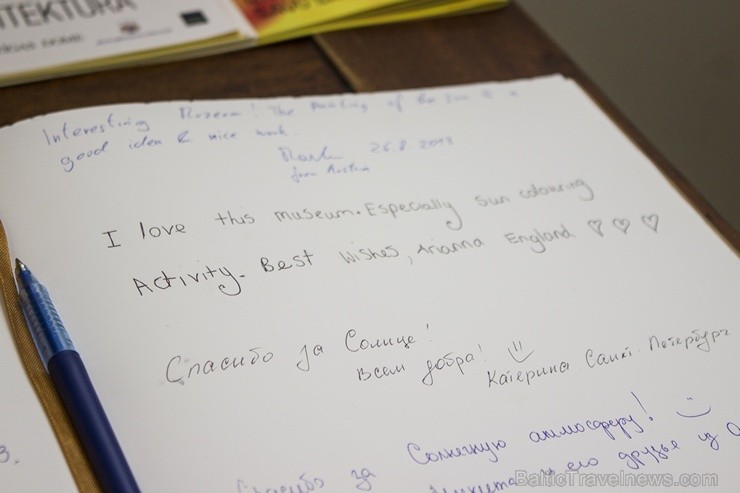 ITEKTŪRA
Interesting Museum! The painting of the Sun is a
good idea & nice work.
26.8.2013
from Austria
I love this museum. Especially sun colouring
Activity. Best wishes, Arianna England ♡ ♡ ♡
Спасибо за Солнце!
Всем добра!
Катерина Санкт Петербург
Спасибо за Солнечную атмосферу!
и его друзья из
3.
BalticTravelnews.com